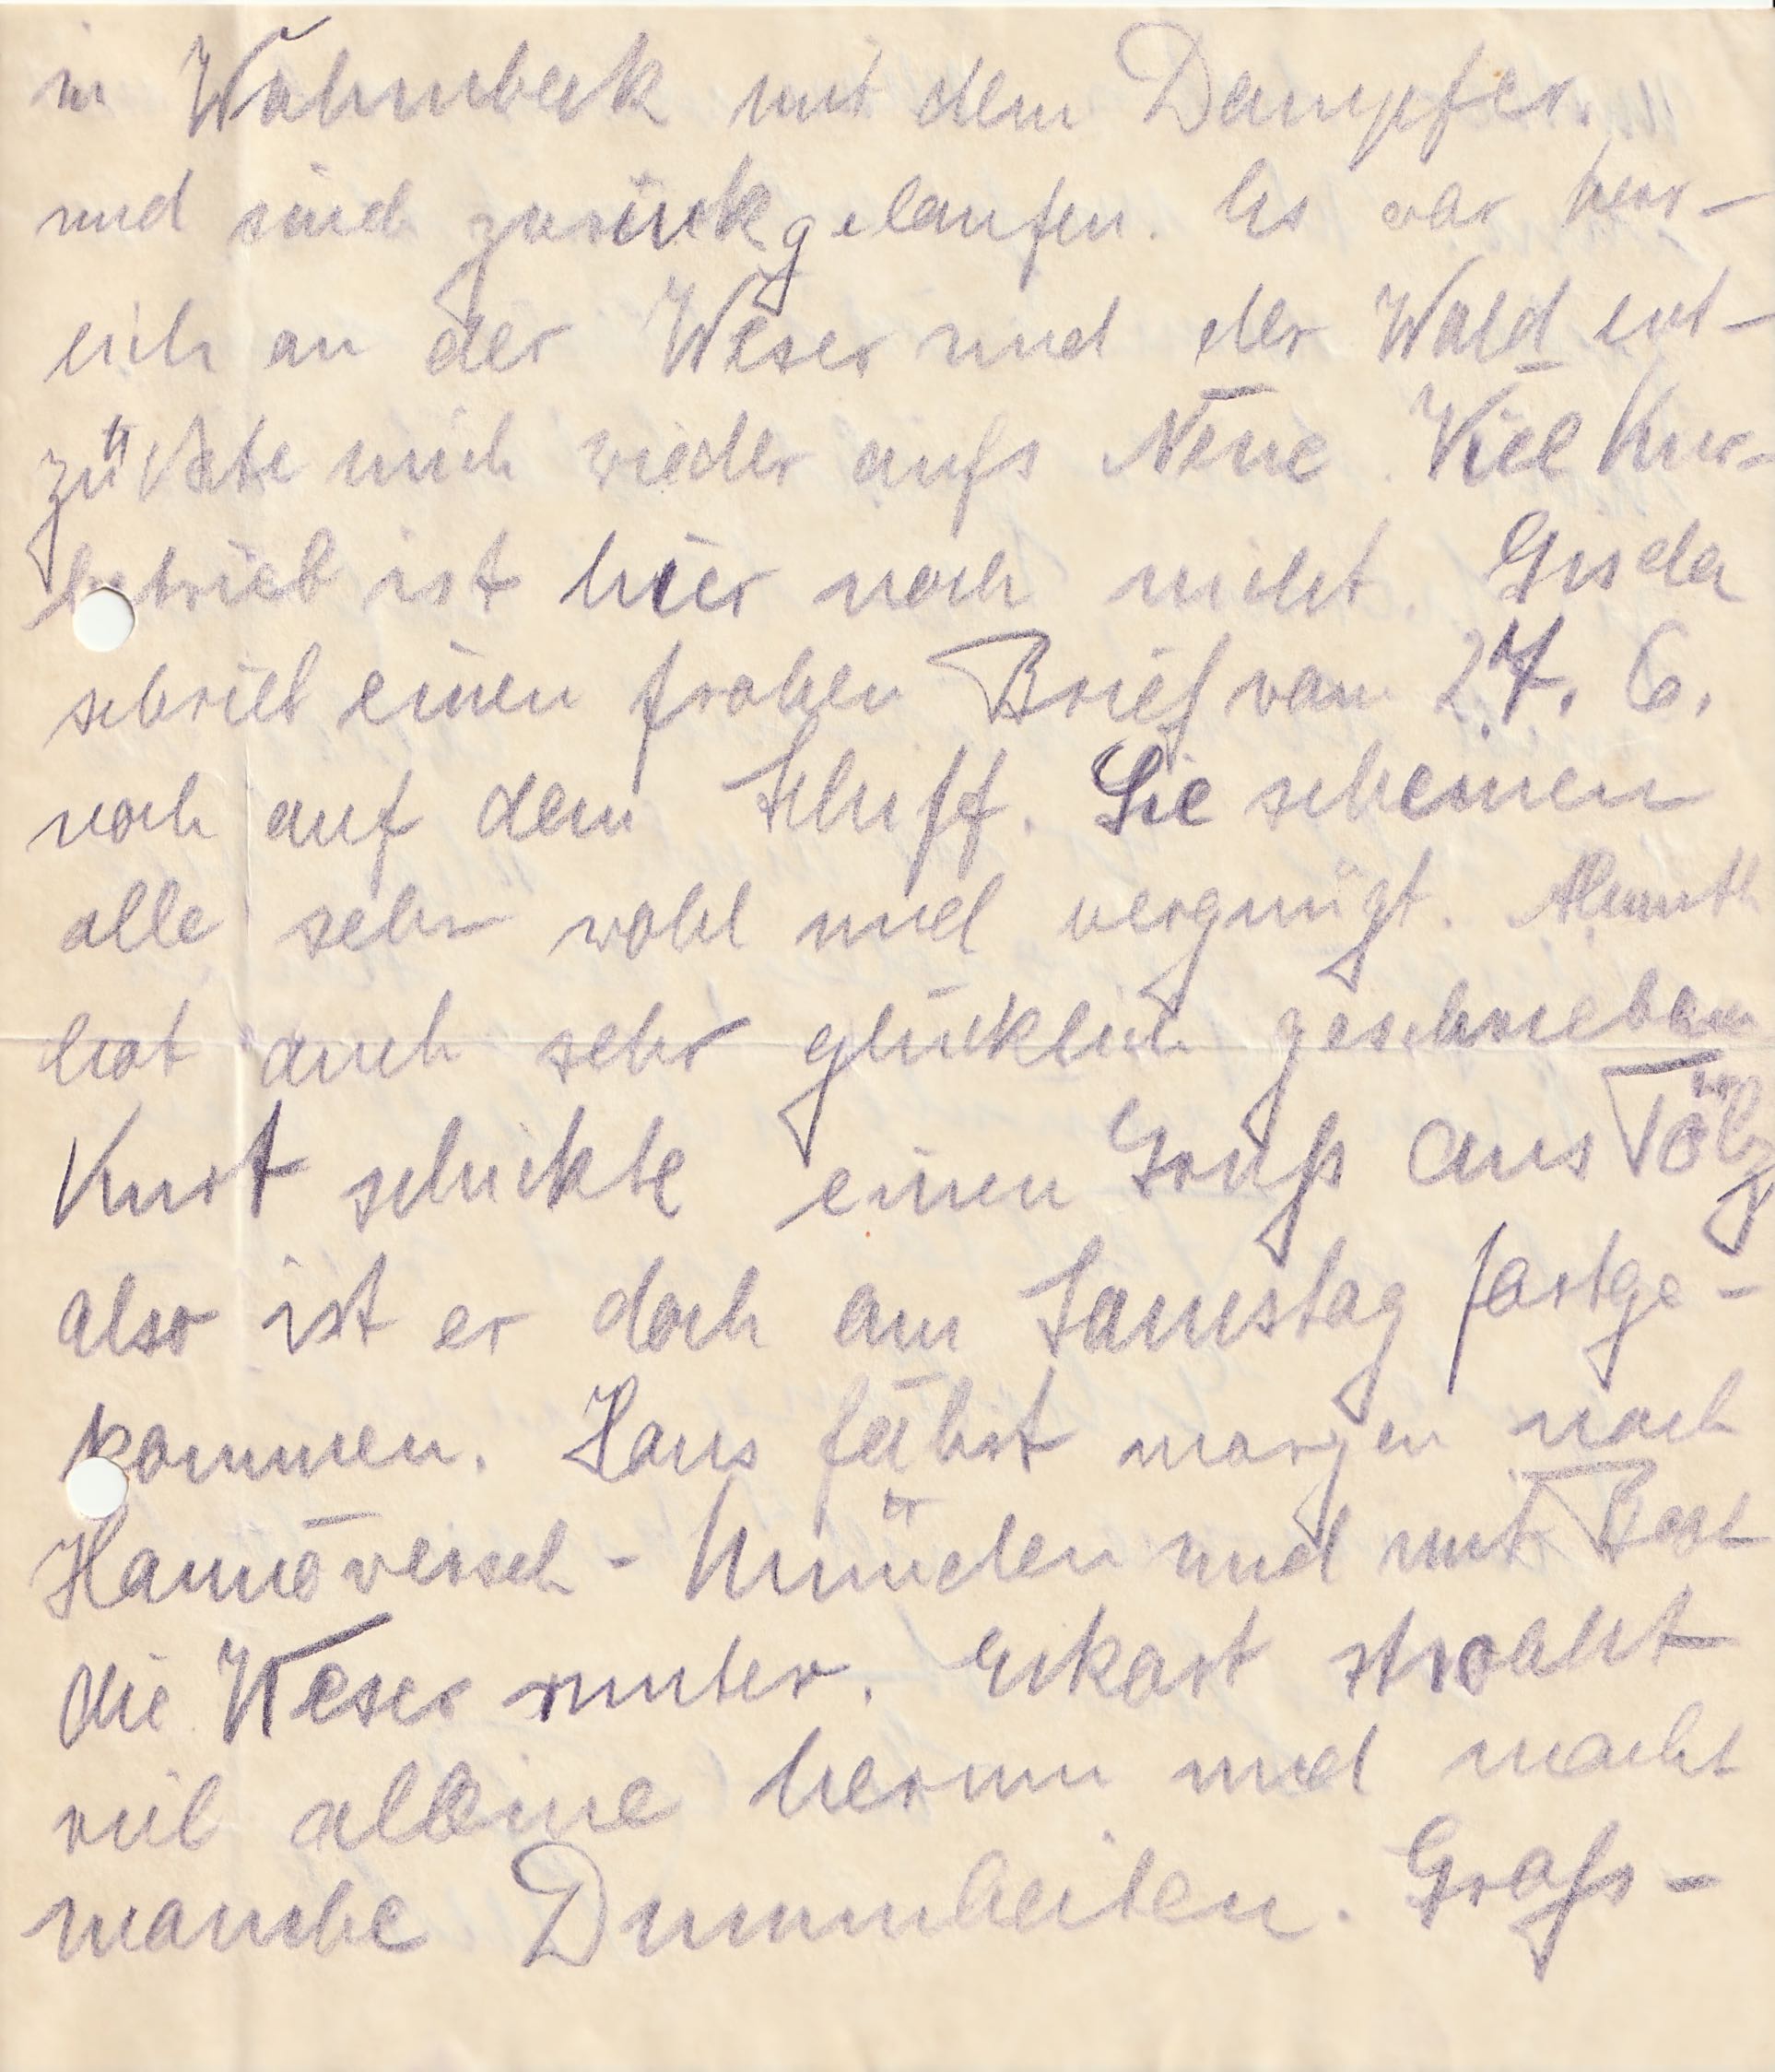 in Wahmbeck mit dem Dampfer.
und sind zurückgelaufen. Es war herr-
lich an der Weser und der Wald ent-
zückte mich wieder aufs Neue. Viel Kur-
betrieb ist hier noch nicht. Gisela
schrieb einen frohen Brief vom 27. 6.
noch auf dem Schiff. Sie scheinen
alle sehr wohl und vergnügt. Almuth
hat auch sehr glücklich geschrieben
Kurt schickte einen Gruß aus Tölz
also ist er doch am Samstag fortge-
kommen. Hans fährt morgen nach
Hannoversch-Münden und mit Boot
die Weser runter. Eckart strahlt
viel alleine herum und macht
manche Dummheiten. Groß-